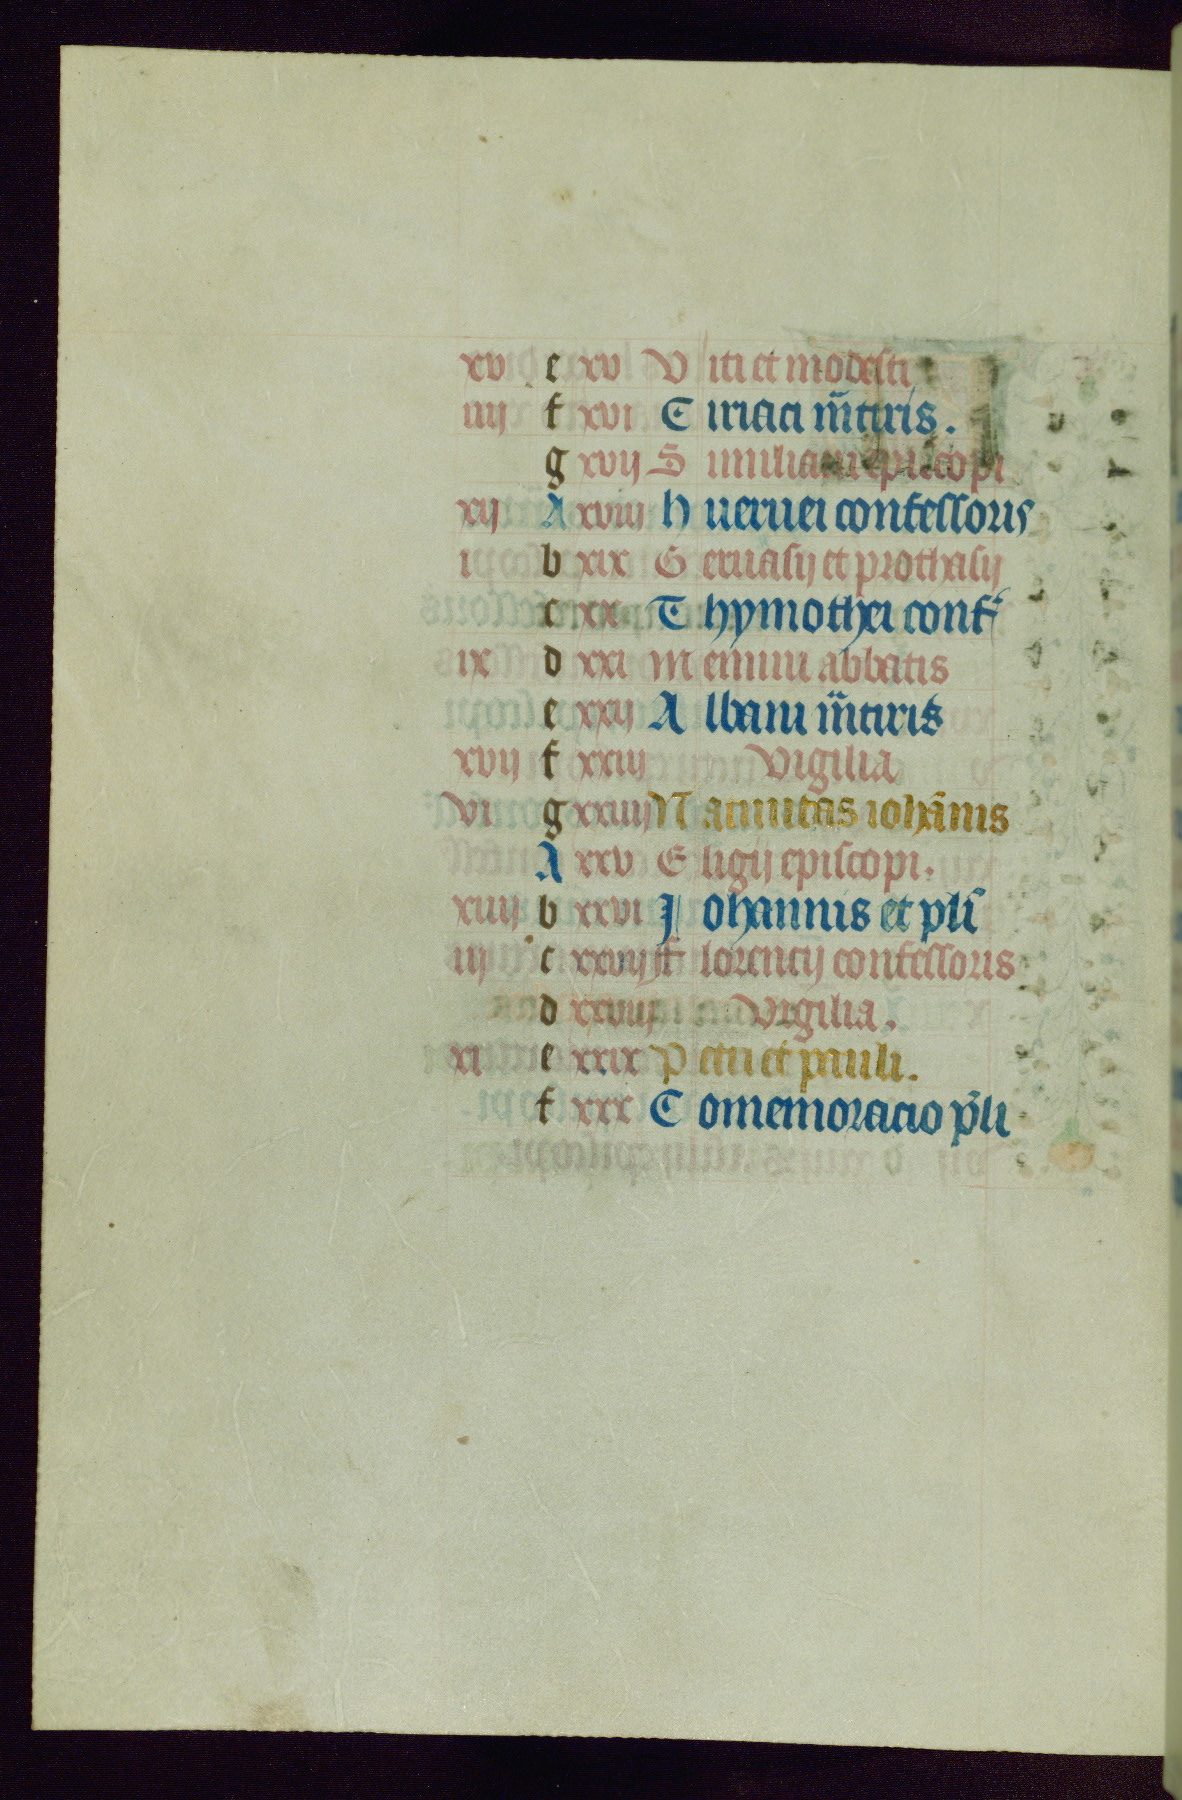 xv e xv Viti et modesti
iiij f xvi Ciriaci m̃tiris.
g xvij Similiani episcopi
xij A xviii Hueruei confessoris
i b xix Geruasij et prothasij
c xx Thymothei conf͛
ix d xxi Meinini abbatis
e xxij Albani m̃tiris
xvij f xxiij Vigilia
vi g xxiiij Natiuitas iohãnis
A xxv Eligij episcopi.
xiiij b xxvi Johannis et pli̅
iij c xxvij florencij confessoris
d xxviij Vigilia.
xi e xxix Petri et pauli.
f xxx Comemoracio p̃li